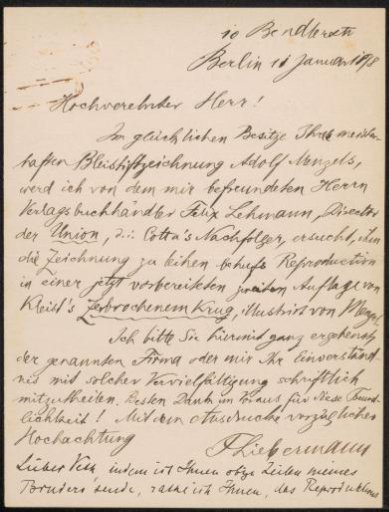 10 Bendlerstr
Berlin 11 Januar 1898
Hochverehrter Herr!
Im glücklichen Besitze Ihrer meister-
haften Bleistiftzeichnung Adolf Menzels,
werd ich von dem mir befreundeten Herrn
Verlagsbuchhändler Felix Lehmann, Director
der Union, die Cotta's Nachfolger, ersucht, ihm
die Zeichnung zu leihen behufs Reproduction
in einer jetzt vorbereiteten zweiten Auflage von
Kleist's Zerbrochenem Krug, illustrirt von Menzel
Ich bitte Sie hiermit ganz ergebenst
der genannten Firma oder mir Ihr Einverständ-
nis mit solcher Vervielfältigung schriftlich
mitzutheilen. Besten Dank im Voraus für diese Freund-
lichkeit! Mit dem Ausdrucke vorzüglicher
Hochachtung
Liebermann
Lieber indem ich Ihnen obge Zeilen meines
Bruders sende, Ihnen, das Reproductions